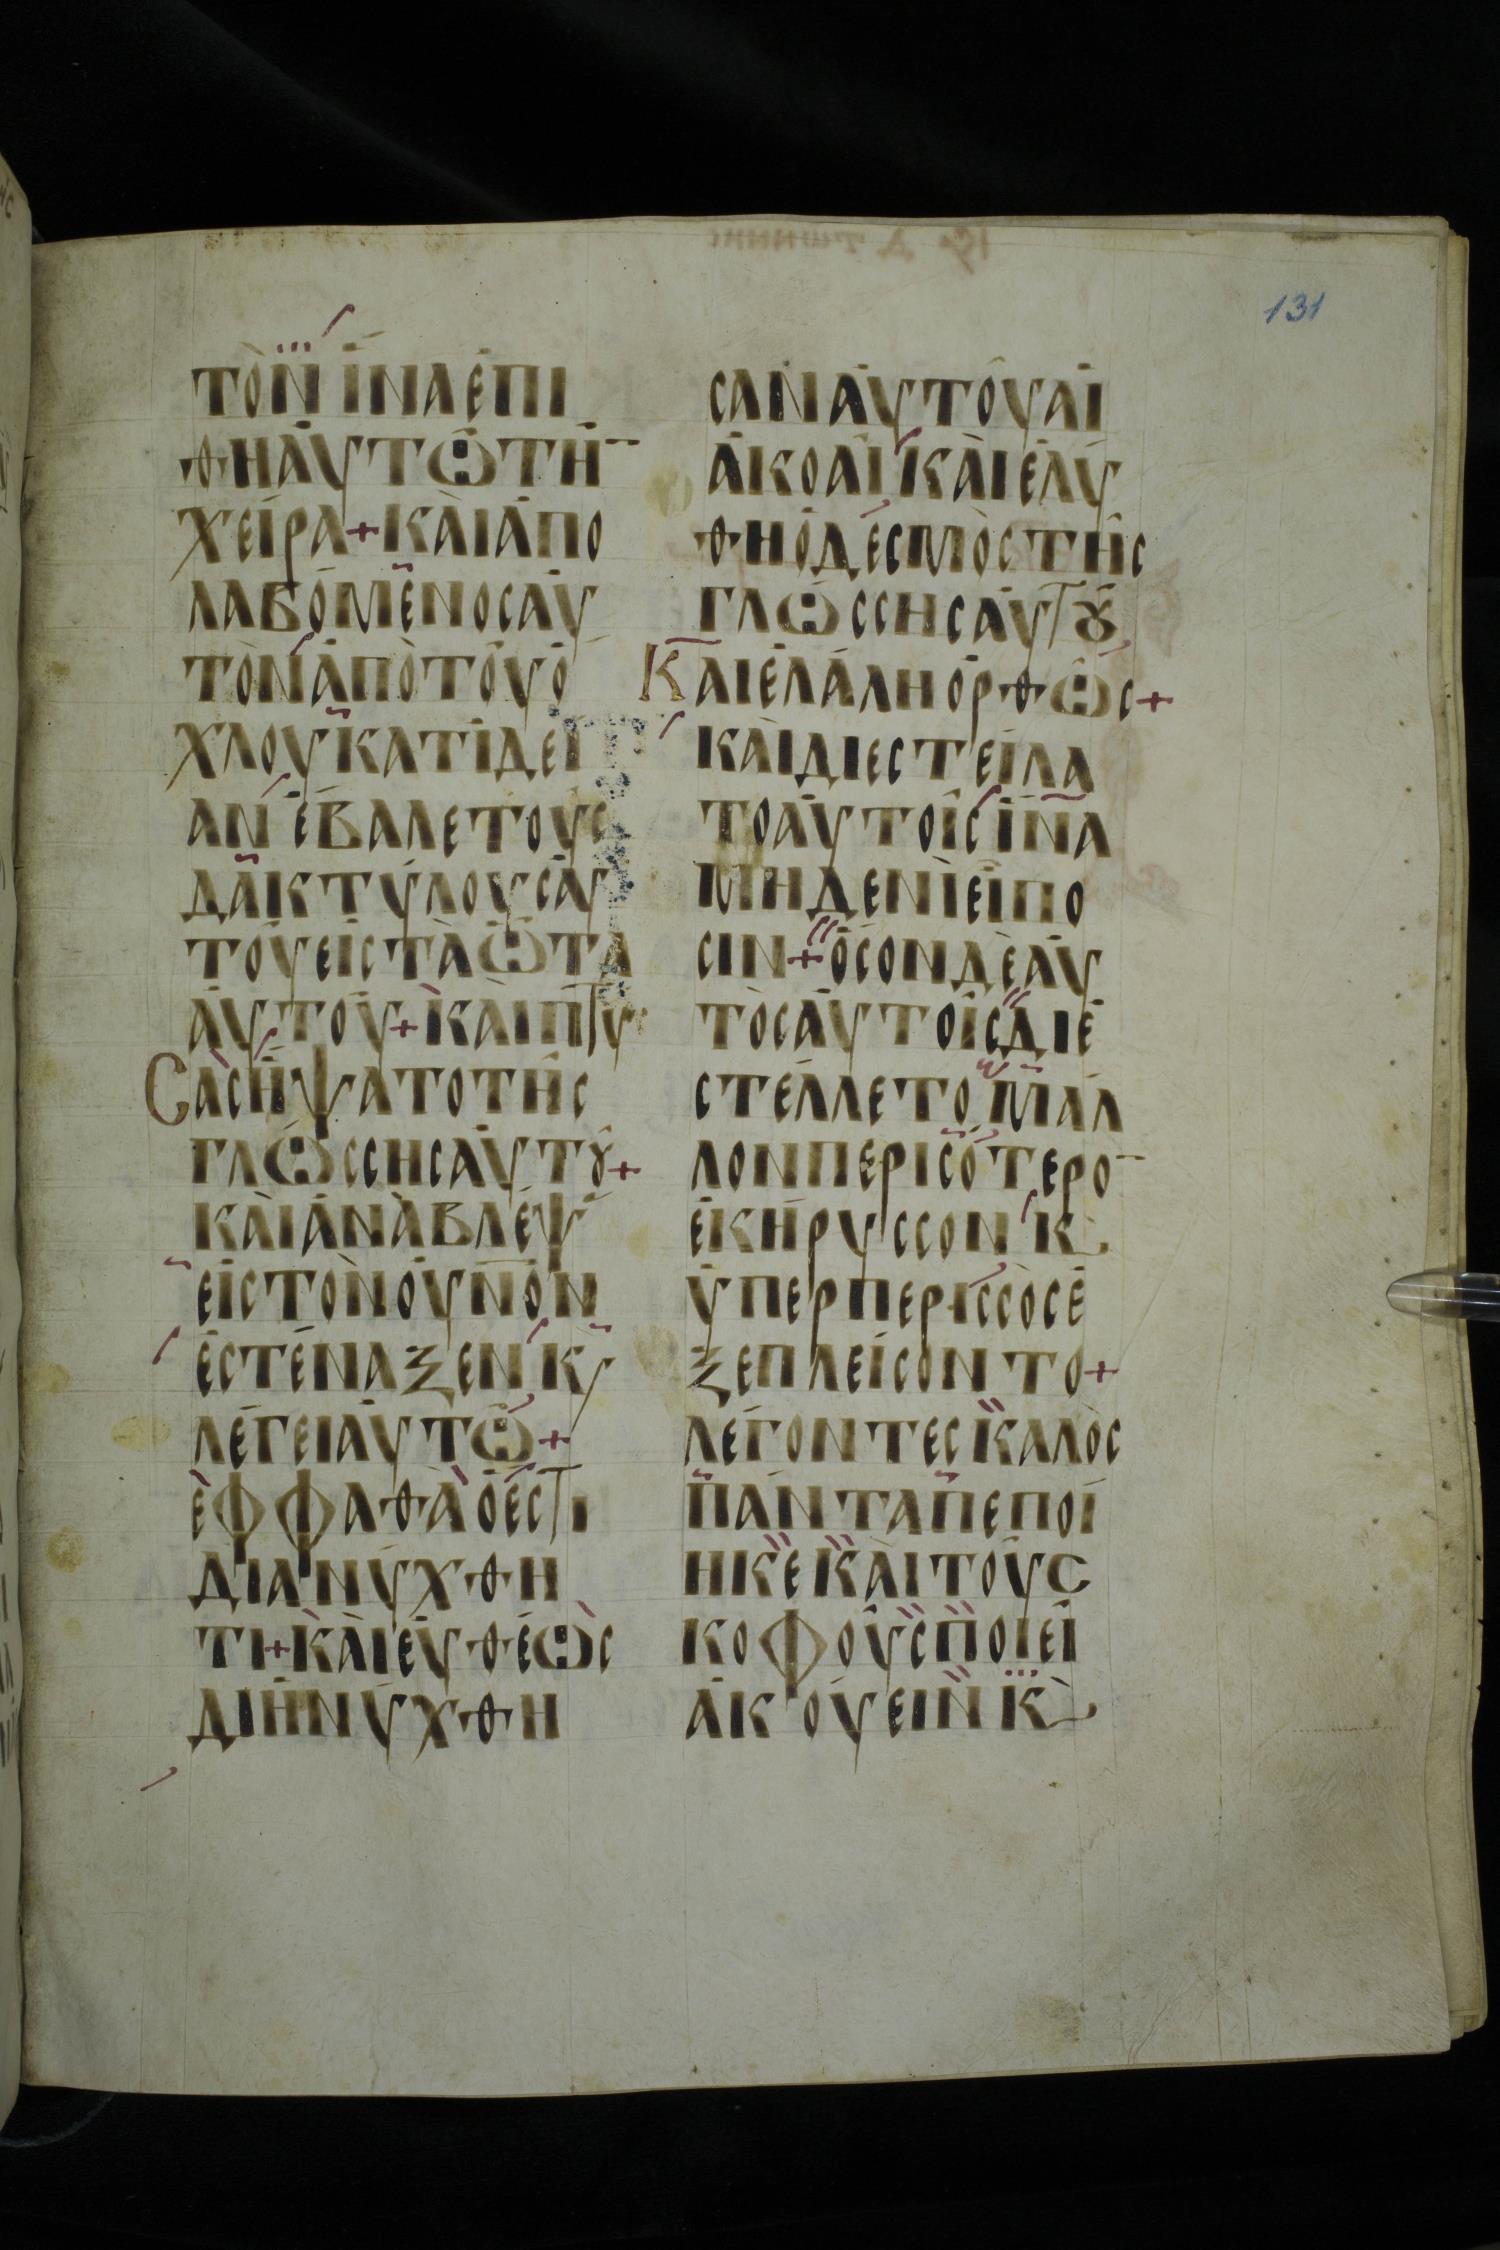 131
ΤῸΝ ΙΝΑ ΕΠΙ
ΘΗ ΑΥΤΩ ΤΗ̄
ΧΕΙΡΑ + ΚΑΙ ΑΠΟ
ΛΑΒΟΜΕΝΟΣ ΑΥ
ΤΟΝ ΑΠΟ ΤΟΥ Ο
ΧΛΟΥ ΚΑΤ ΙΔΕΙ
ΑΝ ΕΒΑΛΕ ΤΟΥΣ
ΔΑΚΤΥΛΟΥΣ ΑΥ
ΤΟΥ ΕΙΣ ΤΑ ΩΤΑ
ΑΥΤΟΥ + ΚΑΙ ΠΤΥ
ΣΑΣ ΗΨΑΤΟ ΤΗΣ
ΓΛΩΣΣΗΣ ΑΥΤȢ +
ΚΑΙ ΑΝΑΒΛΕΨ
ΕΙΣ ΤΟΝ ΟΥΝ̄ΟΝ
ΕΣΤΕΝΑΞΕΝ Κ,
ΛΕΓΕΙ ΑΥΤΩ +
ΕΦΦΑΘΑ Ο ΕΣΤΙ
ΔΙΑΝΥΧΘΗ
ΤΙ + ΚΑΙ ΕΥΘΕΩΣ
ΔΙΗΝΥΧΘΗ
ΣΑΝ ΑΥΤΟΥ ΑΙ
ΑΚΟΑΙ ΚΑΙ ΕΛΥ
ΘΗ Ο ΔΕΣΜΟΣ ΤΗΣ
ΓΛΩΣΣΗΣ ΑΥΤȢ
ΚΑΙ ΕΛΑΛΗ ΟΡΘΩΣ +
ΚΑΙ ΔΙΕΣΤΕΙΛΑ
ΤΟ ΑΥΤΟΙΣ ΙΝΑ
ΜΗΔΕΝΙ ΕΙΠΟ
ΣΙΝ + ΟΣΟΝ ΔΕ ΑΥ
ΤΟΣ ΑΥΤΟΙΣ ΔΙΕ
ΣΤΕΛΛΕΤΟ ΜΑΛ
ΛΟΝ ΠΕΡΙΣΟΤΕΡΟ̄
ΕΚΗΡΥΣΣΟΝ Κ,
ΥΠΕΡΠΕΡΙΣΣΟΣ Ε
ΞΕΠΛΕΙΣΟΝΤΟ +
ΛΕΓΟΝΤΕΣ ΚΑΛΟΣ
ΠΑΝΤΑ ΠΕΠΟΙ
ΗΚΕ ΚΑΙ ΤΟΥΣ
ΚΟΦΟΥΣ ΠΟΙΕΙ
ΑΚΟΥΕΙΝ Κ,